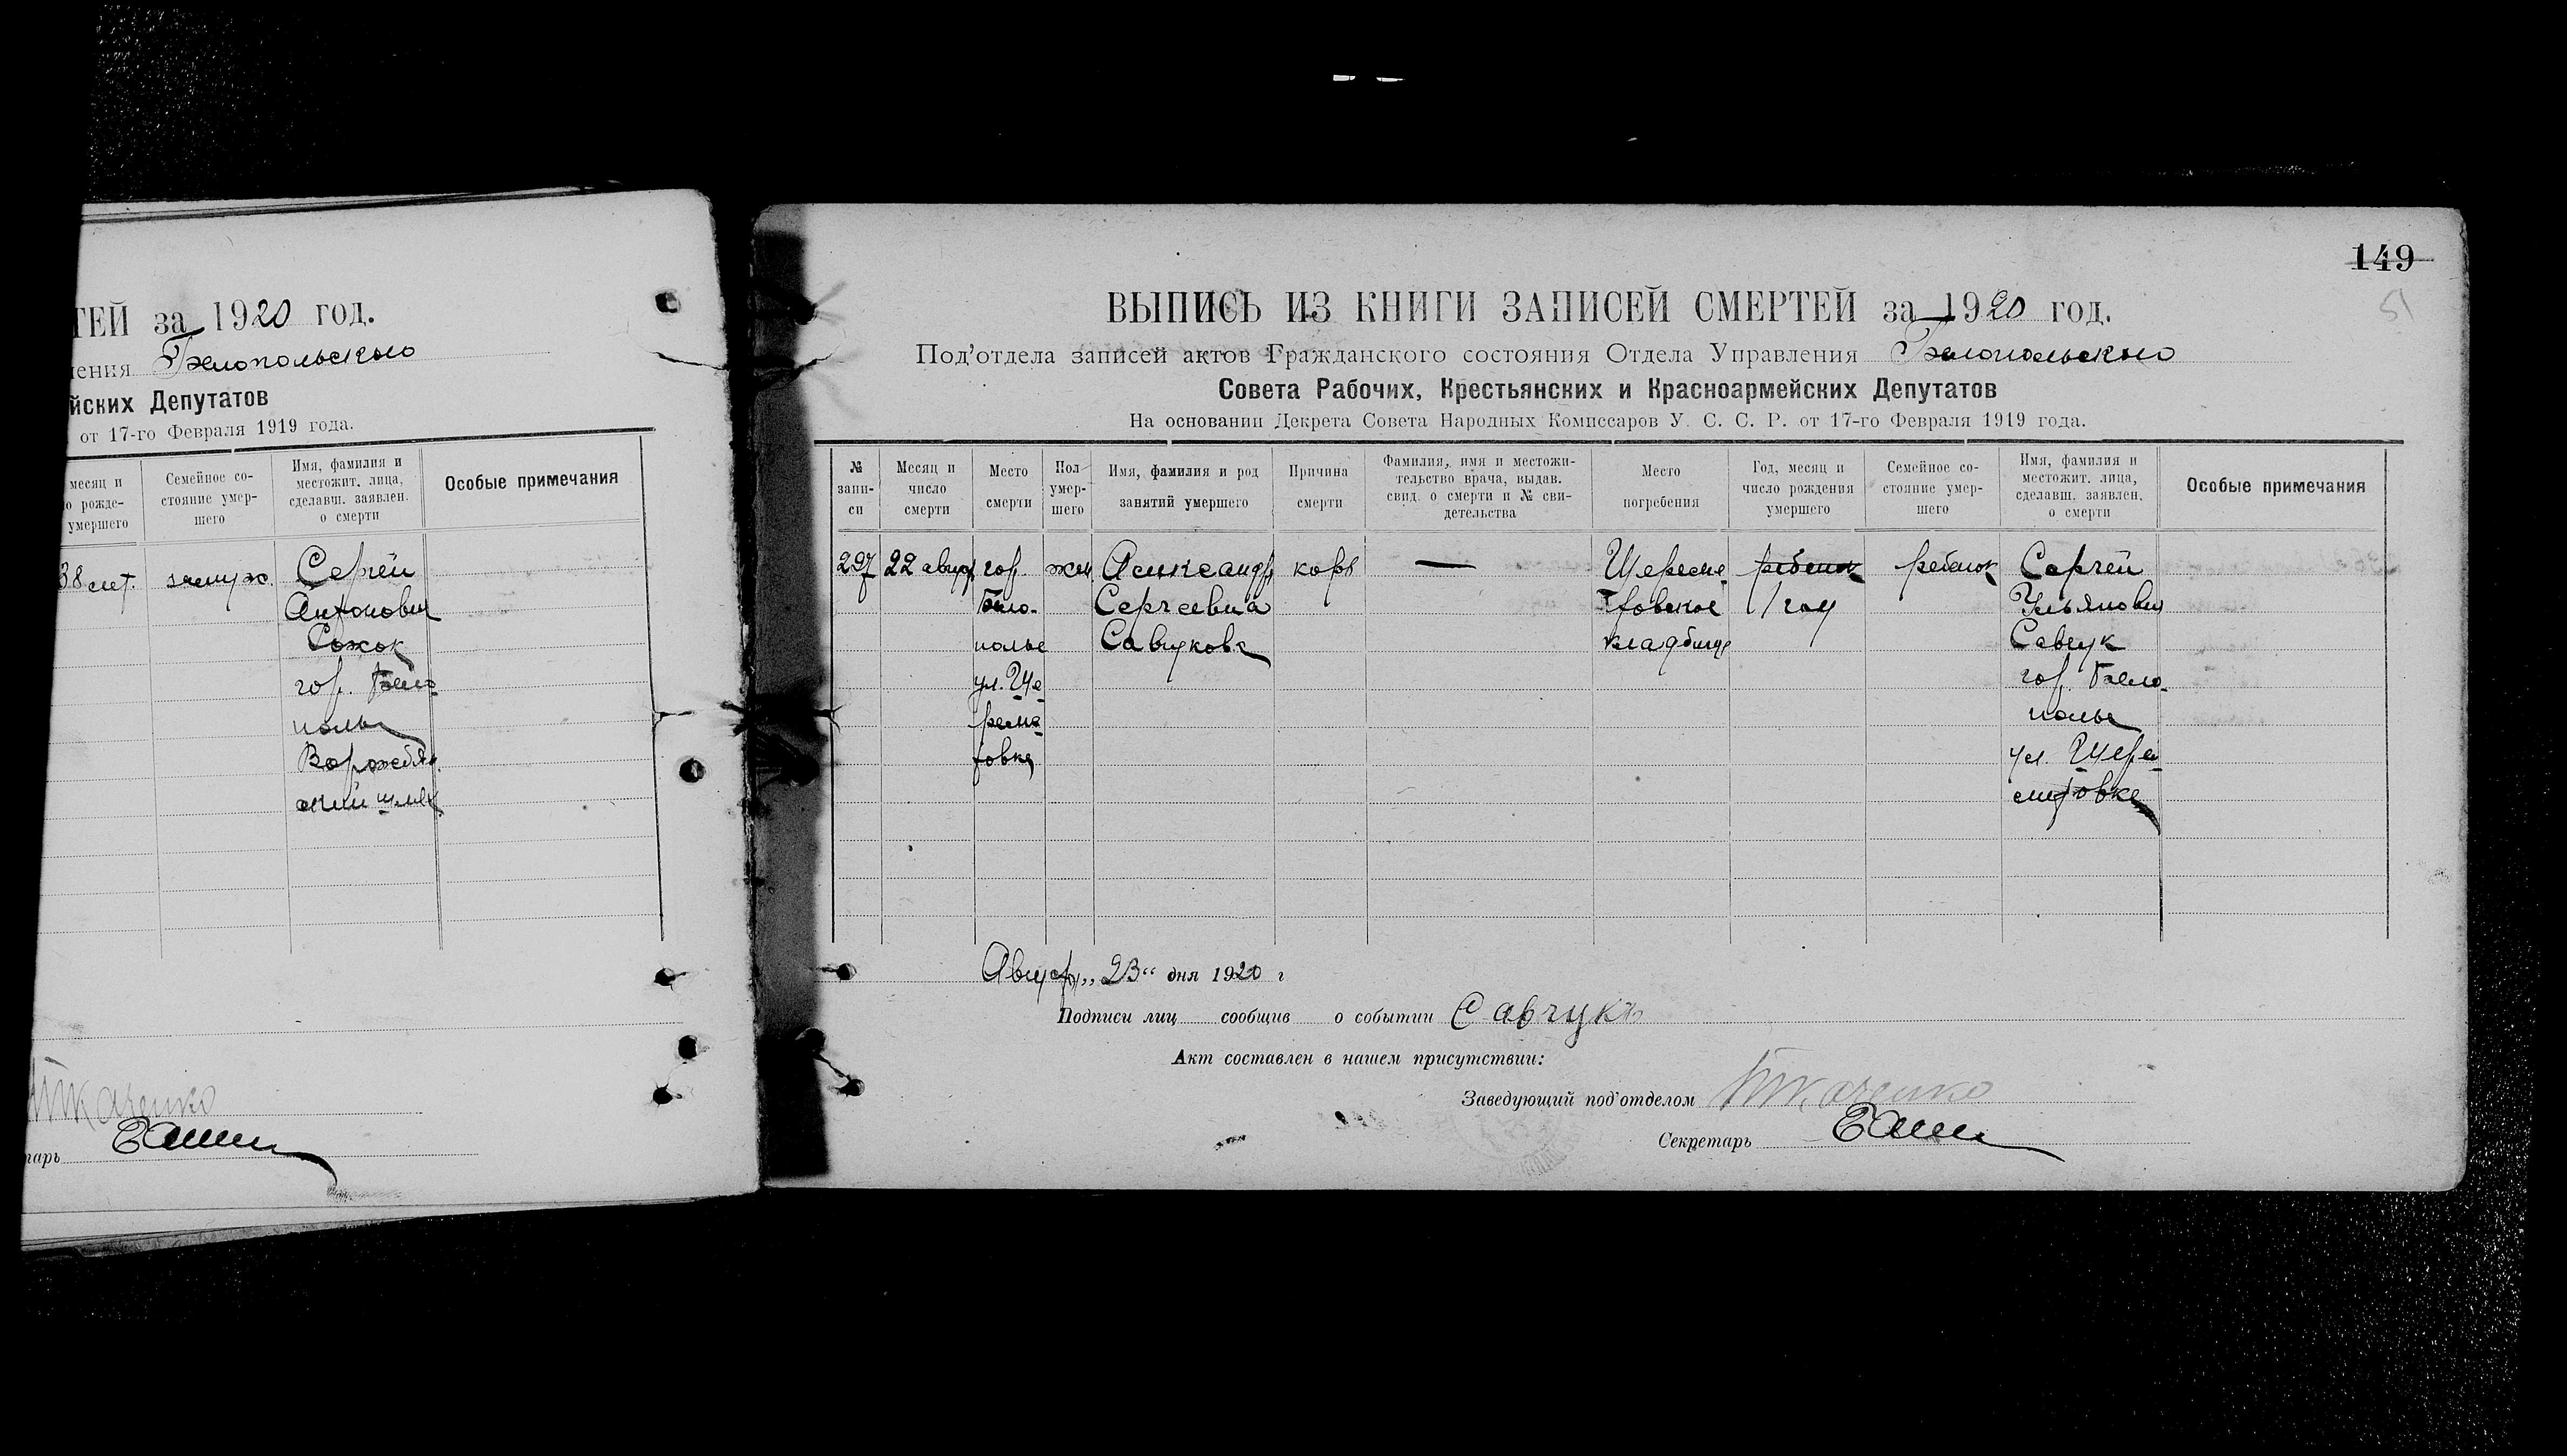 ТЕЙ за 1920 год.
ения Белопольского
йских Депутатов
от 17-го Февраля 1919 года.
месяц и
о рожде-
умершего
Семейное со-
стояние умер-
шего
Имя, фамилия и
местожит. лица,
сделавш. заявлен.
о смерти
Особые примечания
38 лет.
замуж.
Сергей
Антонович
Сожок
гор. Бело
полье
Ворожбян.
ский шлях
Ткаченко
тарь
149
51
ВЫПИСЬ ИЗ КНИГИ ЗАПИСЕЙ СМЕРТЕЙ за 1920 год.
Под'отдела записей актов Гражданского состояния Отдела Управления Белопольского
Совета Рабочих, Крестьянских и Красноармейских Депутатов
На основании Декрета Совета Народных Комиссаров У. С. С. Р. от 17-го Февраля 1919 года.
№
запи-
си
Месяц и
число
смерти
Место
смерти
Пол
умер-
шего
Имя, фамилия и род
занятий умершего
Причина
смерти
Фамилия, имя и местожи-
тельство врача, выдав.
свид. о смерти и № сви-
детельства
Место
погребения
Год, месяц и
число рождения
умершего
Семейное со-
стояние умер-
шего
Имя, фамилия и
местожит. лица,
сделавш. заявлен.
о смерти
Особые примечания
297
22 август
гор.
Бело-
полье
ул. Ше-
реме-
товка
жен
Александр
Сергеевна
Савчукова
корь
—
Шереме-
товское
кладбище
ребенок
1 год
ребенок
Сергей
Ульянович
Савчук
гор. Бело-
полье
ул. Шере-
метовка
Август „23“ дня 1920 г
Подписи лиц сообщив о событии Савчукъ
Акт составлен в нашем присутствии:
Заведующий под'отделом Ткаченко
Секретарь